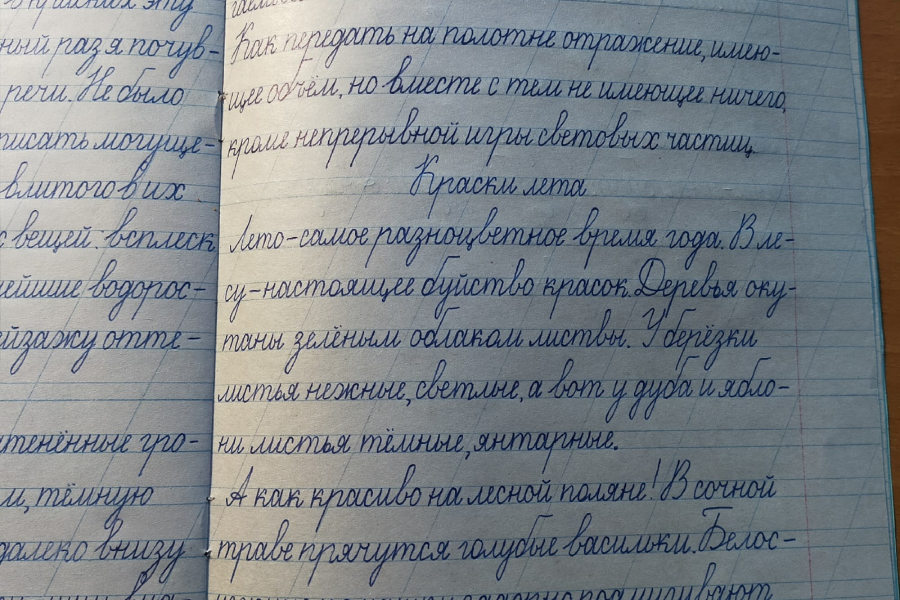 ный раз я почув-
речи. Не было
писать могуще-
влитого в их
с вещей: всплеск
нейшие водорос-
ейзажу отте-
атенённые гро-
м, тёмную
далеко внизу
Как передать на полотне отражение, имею-
щее объём, но вместе с тем не имеющее ничего,
кроме непрерывной игры световых частиц.
Краски лета
Лето-самое разноцветное время года. В ле-
су-настоящее буйство красок. Деревья оку-
таны зелёным облаком листвы. У берёзки
листья нежные, светлые, а вот у дуба и ябло-
ни листья тёмные, янтарные.
А как красиво на лесной поляне! В сочной
траве прячутся голубые васильки. Белос-